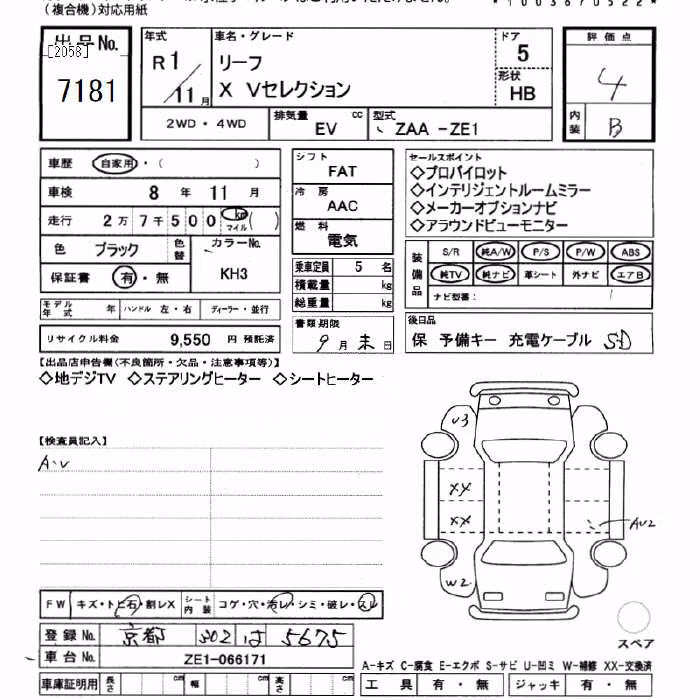 (複合機)対応用紙
*1003670522*
出品No.
[2058]
7181
年式 R1/11月
車名・グレード
リーフ
X Vセレクション
ドア 5
形状 HB
2WD・4WD
排気量 EV cc
型式 ZAA -ZE1
評価点
4
内装 B
車歴 自家用・( )
車検 8年 11月
走行 2万7千500km マイル( )
色 ブラック 色替
カラーNo. KH3
保証書 有・無
モデル年式 年 ハンドル 左・右 ディーラー・並行
リサイクル料金 9,550 円 預託済
シフト FAT
冷房 AAC
燃料 電気
乗車定員 5名
積載量 kg
総重量 kg
書類期限
9月末日
セールスポイント
◇プロパイロット
◇インテリジェントルームミラー
◇メーカーオプションナビ
◇アラウンドビューモニター
装備品
S/R 純A/W P/S P/W ABS
純TV 純ナビ 革シート 外ナビ エアB
ナビ型番:
後日品
保 予備キー 充電ケーブル SD
【出品店申告欄(不良箇所・欠品・注意事項等)】
◇地デジTV ◇ステアリングヒーター ◇シートヒーター
【検査員記入】
A・U
U3
XX
XX
AU2
W2
スペア
FW キズ・トビ石・割レX シート内装 コゲ・穴・汚レ・シミ・破レ・スレ
登録No. 京都 302 は 5675
車台No. ZE1-066171
車庫証明用 長さ cm 幅 cm 高さ cm
A-キズ C-腐食 E-エクボ S-サビ U-凹ミ W-補修 XX-交換済
工具 有・無 ジャッキ 有・無